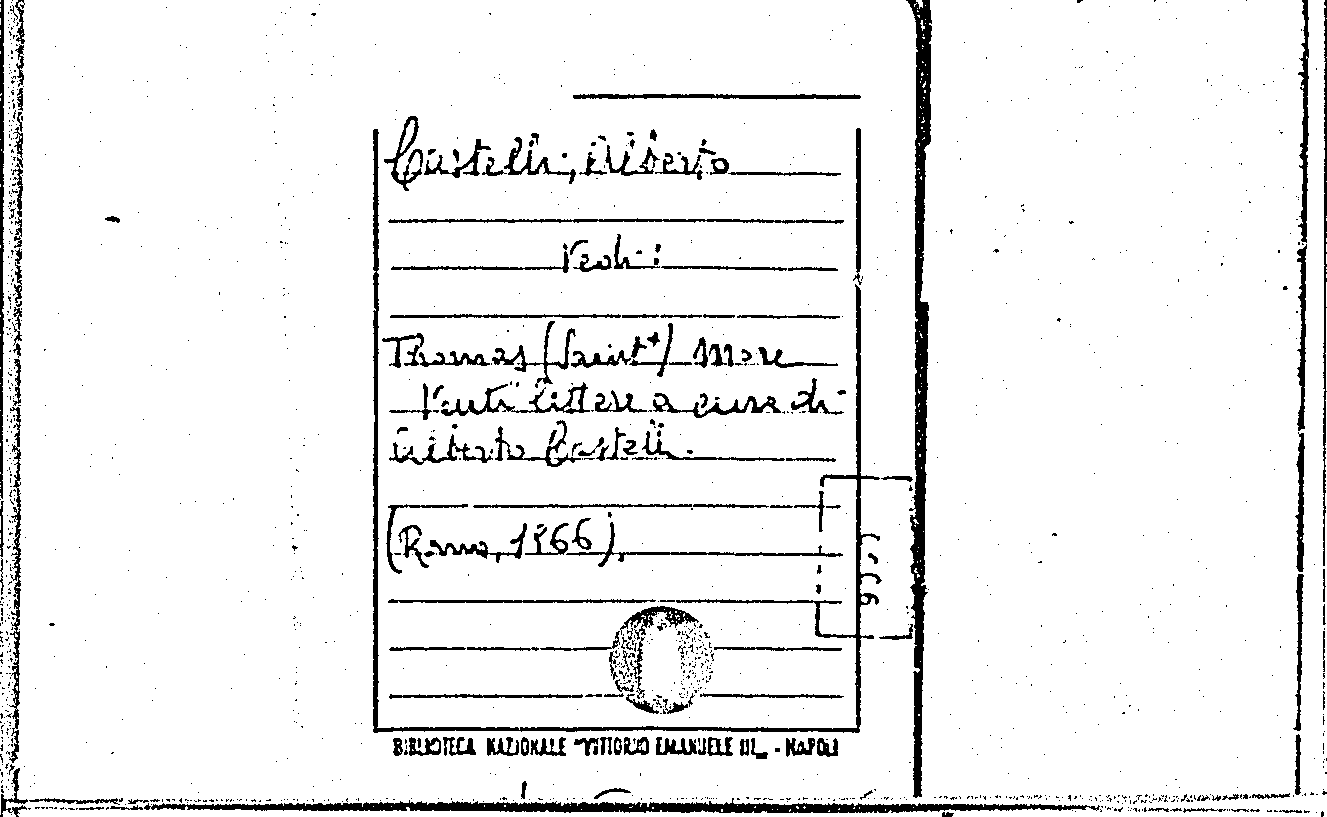 Castelli, Alberto
Vedi:
Thomas (Saint) More
Venti lettere a cura di
Alberto Castelli.
(Roma, 1966).
BIBLIOTECA NAZIONALE "VITTORIO EMANUELE III" - NAPOLI